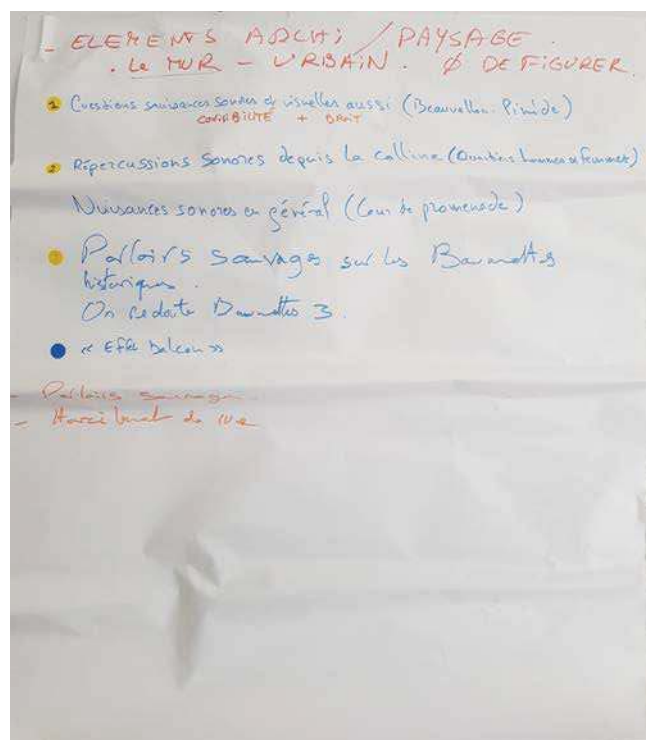 - ELEMENTS ARCHI / PAYSAGE.
. LE MUR - URBAIN. Ø DEFIGURER.
1 Questions nuisances sonores et visuelles aussi (Beauvallon. Pinède)
COVISIBILITÉ + BRUIT
2 Répercussions sonores depuis la colline (Quartiers hommes et femmes)
Nuisances sonores en général (Cour de promenade)
3 Parloirs sauvages sur les Baumettes
historiques.
On redoute Baumettes 3.
« Effet balcon »
- Parloirs sauvages
- Harcèlement de rue